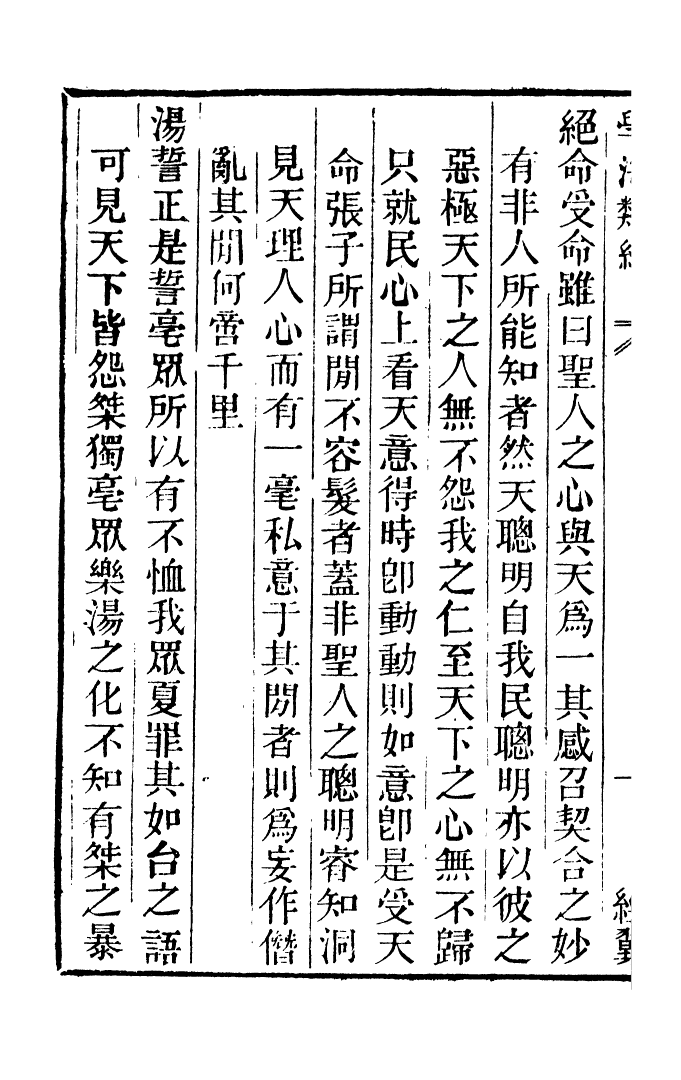 學海類編
絕命受命雖曰聖人之心與天爲一其感召契合之妙
有非人所能知者然天聰明自我民聰明亦以彼之
惡極天下之人無不怨我之仁至天下之心無不歸
只就民心上看天意得時卽動動則如意卽是受天
命張子所謂閒不容髮者蓋非聖人之聰明睿知洞
見天理人心而有一毫私意于其閒者則爲妄作僭
亂其閒何啻千里
湯誓正是誓亳眾所以有不恤我眾夏罪其如台之語
可見天下皆怨桀獨亳眾樂湯之化不知有桀之暴